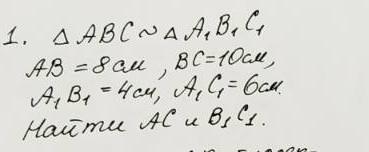 1. △ ABC ~ △ A₁B₁C₁
AB = 8 см, BC = 10 см,
A₁B₁ = 4 см, A₁C₁ = 6 см.
Найти AC и B₁C₁.